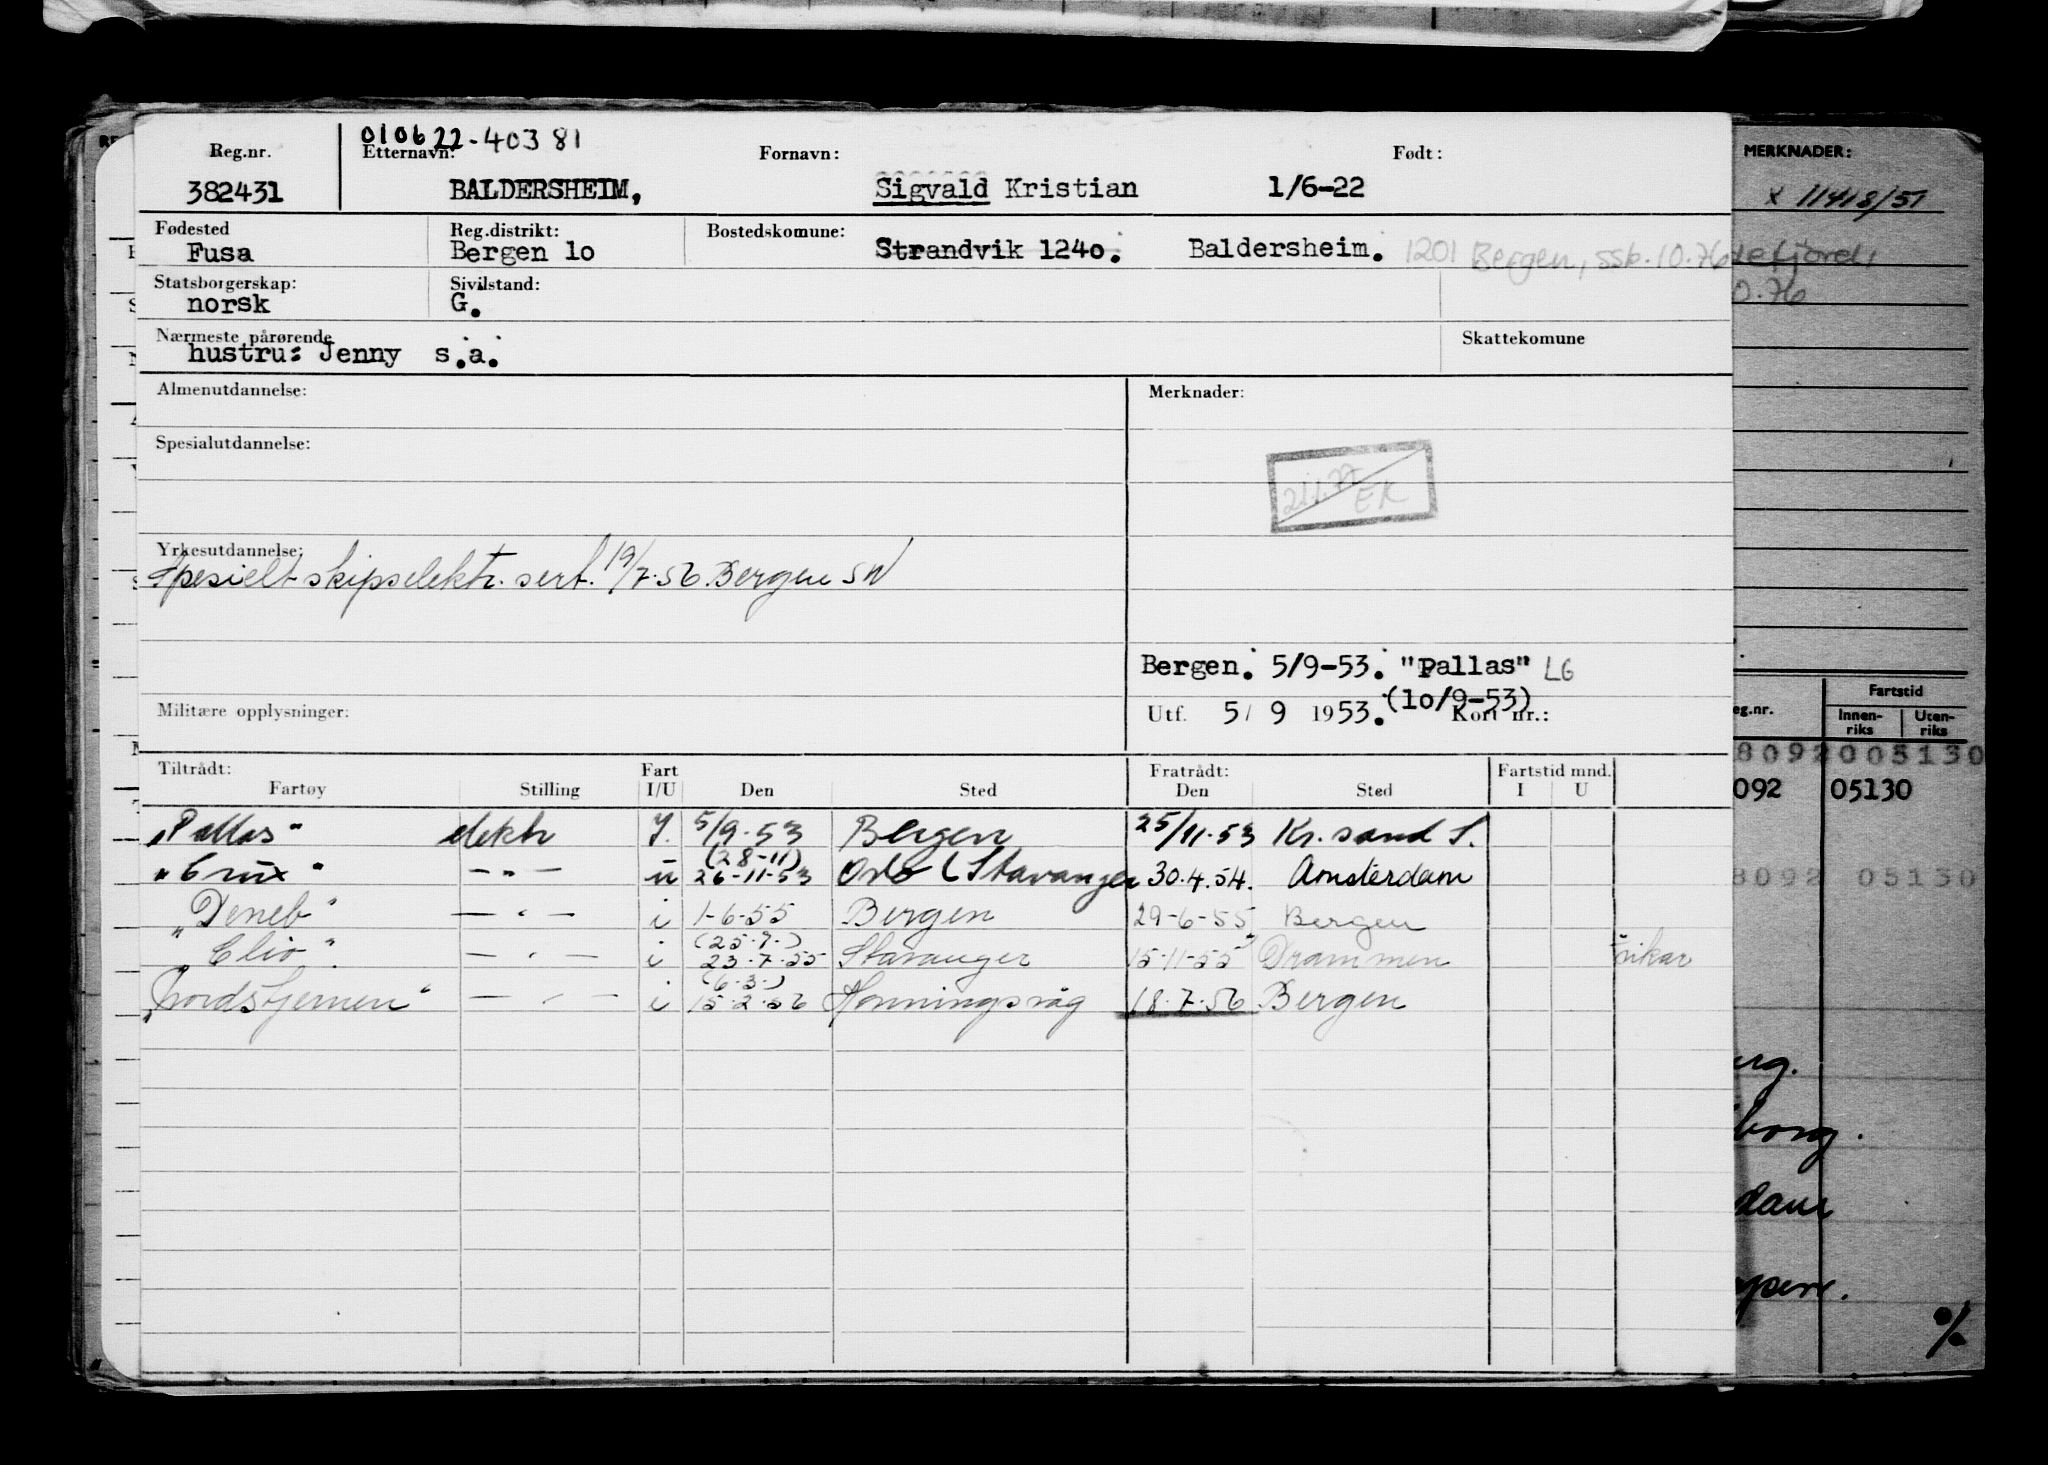 010622-40381
Reg.nr. Etternavn: Fornavn: Født:
382431 BALDERSHEIM, Sigvald Kristian 1/6-22
Fødested Reg.distrikt: Bostedskomune:
Fusa Bergen 10 Strandvik 1240. Baldersheim. 1201 Bergen, ssb. 10.76
Statsborgerskap: Sivilstand:
norsk G.
Nærmeste pårørende Skattekomune
hustru: Jenny s.a.
Almenutdannelse: Merknader:
Spesialutdannelse:
21.1.77 EK
Yrkesutdannelse:
Spesielt skipselektr. sert. 19/7.56. Bergen SW
Bergen. 5/9-53. "Pallas" LG
(10/9-53)
Militære opplysninger: Utf. 5/ 9 1953. Kort nr.:
Tiltrådt: Fart Fratrådt: Fartstid mnd.
Fartøy Stilling I/U Den Sted Den Sted I U
"Pallas" elektr I. 5/9-53 Bergen 25/11-53 Kr.sand S.
(28-11)
"Crux" -"- u 26-11-53 Oslo (Stavanger 30.4.54. Amsterdam
"Deneb" -"- i 1-6-55 Bergen 29-6-55 Bergen
(25.7.)
"Clio" -"- i 23.7.55 Stavanger 15-11-55 Drammen vikar
(6.3.)
"Nordstjernen" -"- i 15.2.56 Honningsvåg 18.7.56 Bergen
MERKNADER:
x 11418/51
efjord,
0.76
eg.nr. Fartstid
Innenriks Utenriks
8092 005130
092 05130
8092 05130
urg.
borg.
dam
%